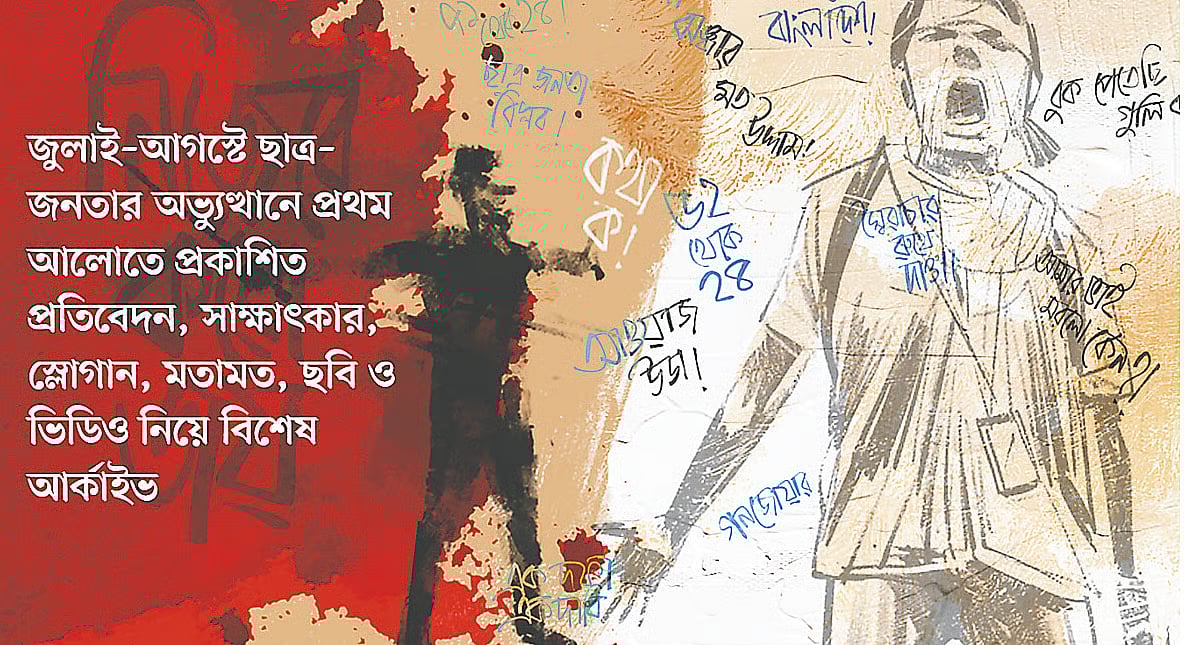 জুলাই-আগস্টে ছাত্র-
জনতার অভ্যুত্থানে প্রথম
আলোতে প্রকাশিত
প্রতিবেদন, সাক্ষাৎকার,
স্লোগান, মতামত, ছবি ও
ভিডিও নিয়ে বিশেষ
আর্কাইভ
২৪!
ছাত্র জনতা
বিপ্লব!
কথা
ক!
মত
উদ্দাম!
বাংলাদেশ!
বুক পেতেছি
গুলি
থেকে
২৪
আওয়াজ
উডা!
স্বৈরাচার
রুখে
দাও!!
আমার ভাই
মরলো কেন?
গনজোয়ার
এক দাবি